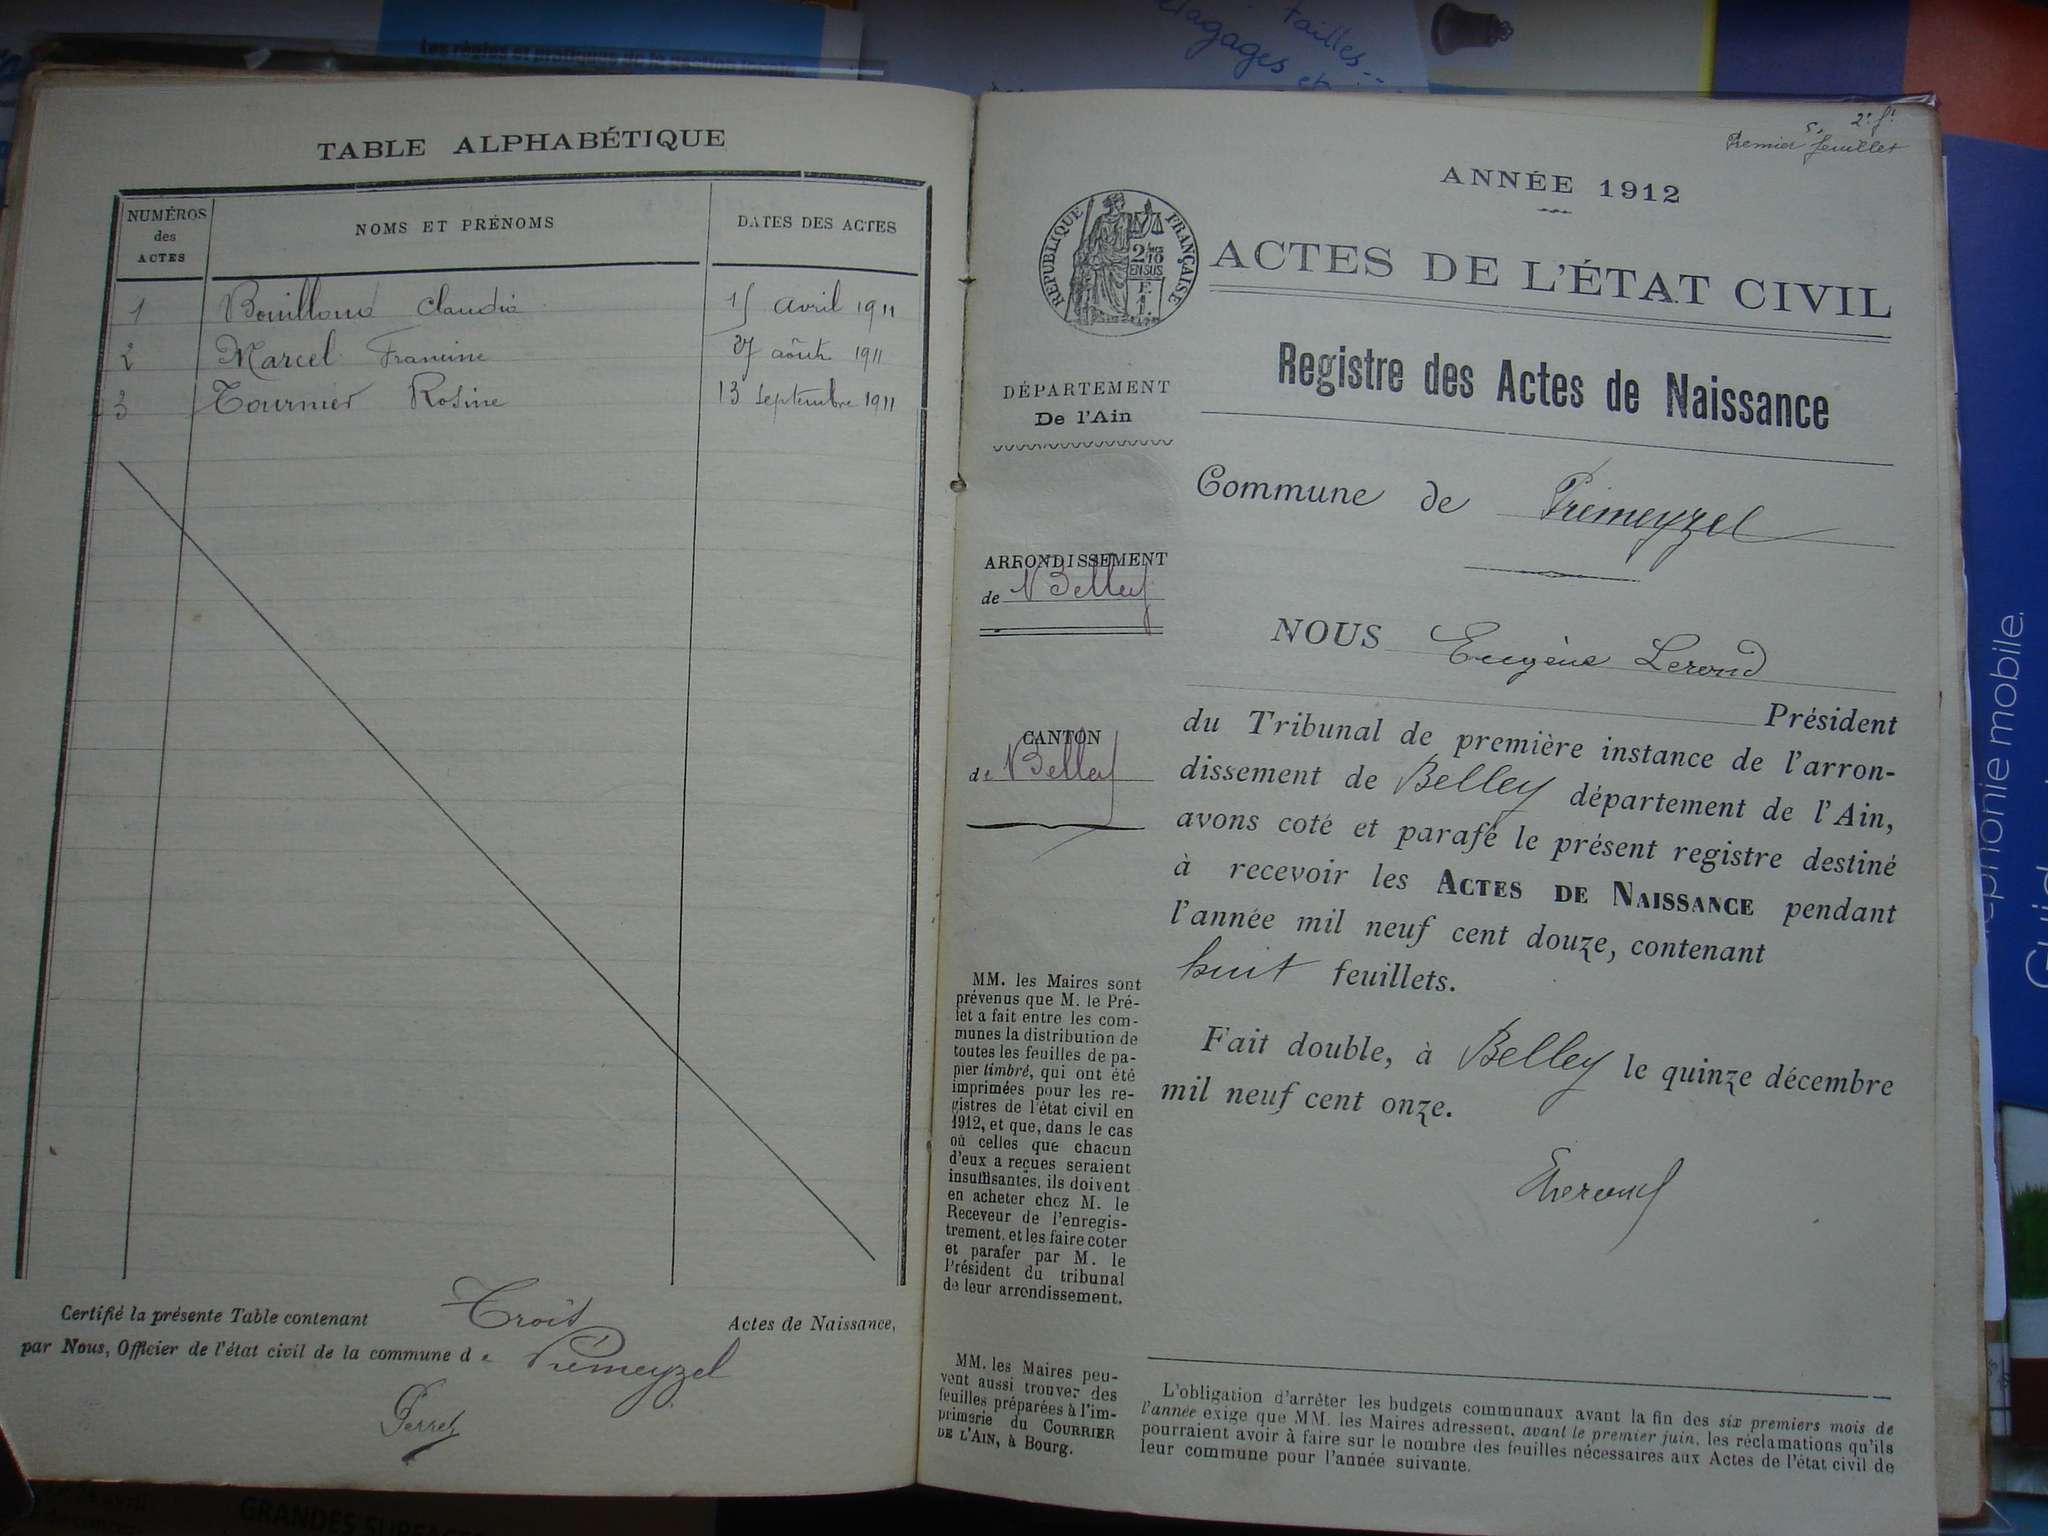 Les règles et pratique de la gestion locale
tailles...
elagages et
TABLE ALPHABÉTIQUE
NUMÉROS des ACTES
NOMS ET PRÉNOMS
DATES DES ACTES
1 Bouilloud Claudia 15 avril 1911
2 Marcel Francine 27 août 1911
3 Tournier Rosine 13 Septembre 1911
Certifié la présente Table contenant Trois Actes de Naissance,
par Nous, Officier de l'état civil de la commune de Prémeyzel
Perret
2e f.t
Premier feuillet
ANNÉE 1912
RÉPUBLIQUE FRANÇAISE
2/10
EN SUS
ACTES DE L'ÉTAT CIVIL
Registre des Actes de Naissance
DÉPARTEMENT
De l'Ain
Commune de Prémeyzel
ARRONDISSEMENT
de Belley
NOUS Eugène Lerond
Président
du Tribunal de première instance de l'arron-
dissement de Belley département de l'Ain,
avons coté et parafé le présent registre destiné
à recevoir les ACTES DE NAISSANCE pendant
l'année mil neuf cent douze, contenant
huit feuillets.
CANTON
de Belley
Fait double, à Belley le quinze décembre
mil neuf cent onze.
ELerond
MM. les Maires sont
prévenus que M. le Pré-
fet a fait entre les com-
munes la distribution de
toutes les feuilles de pa-
pier timbré, qui ont été
imprimées pour les re-
gistres de l'état civil en
1912, et que, dans le cas
où celles que chacun
d'eux a reçues seraient
insuffisantes, ils doivent
en acheter chez M. le
Receveur de l'enregis-
trement, et les faire coter
et parafer par M. le
Président du tribunal
de leur arrondissement.
MM. les Maires peu-
vent aussi trouver des
feuilles préparées à l'im-
primerie du COURRIER
DE L'AIN, à Bourg.
L'obligation d'arrêter les budgets communaux avant la fin des six premiers mois de
l'année exige que MM. les Maires adressent, avant le premier juin, les réclamations qu'ils
pourraient avoir à faire sur le nombre des feuilles nécessaires aux Actes de l'état civil de
leur commune pour l'année suivante.
phonie mobile.
GRANDES SURFACES